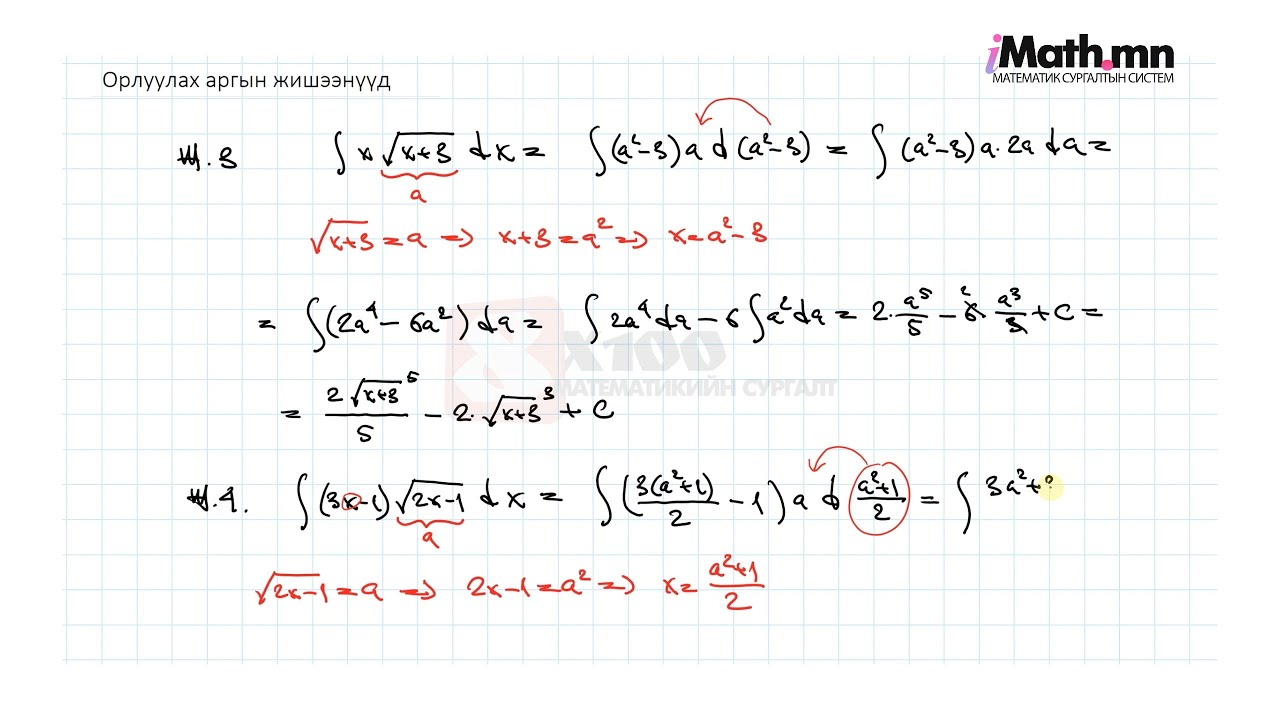 iMath.mn
МАТЕМАТИК СУРГАЛТЫН СИСТЕМ
Орлуулах аргын жишээнүүд
Ж.3 ∫ x √(x+3) dx = ∫ (a²-3) a d(a²-3) = ∫ (a²-3) a · 2a da =
a
√(x+3) = a ⇒ x+3 = a² ⇒ x = a²-3
= ∫ (2a⁴ - 6a²) da = ∫ 2a⁴ da - 6 ∫ a² da = 2 · a⁵/5 - 6 2 · a³/3 + C =
X100
МАТЕМАТИКИЙН СУРГАЛТ
= 2√(x+3)⁵/5 - 2 · √(x+3)³ + C
Ж.4. ∫ (3x-1) √(2x-1) dx = ∫ (3(a²+1)/2 - 1) a d (a²+1)/2 = ∫ 3a²+
a
√(2x-1) = a ⇒ 2x-1 = a² ⇒ x = (a²+1)/2